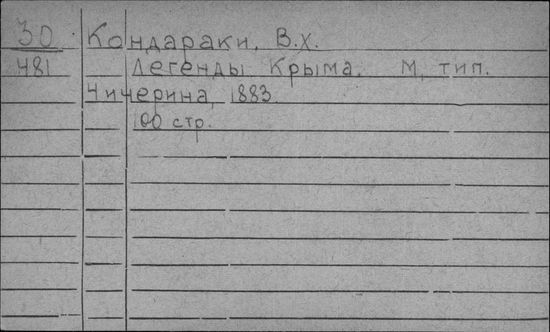 30 Кондараки, В.Х.
481 Легенды Крыма. М, тип.
Чичерина, 1883.
100 стр.